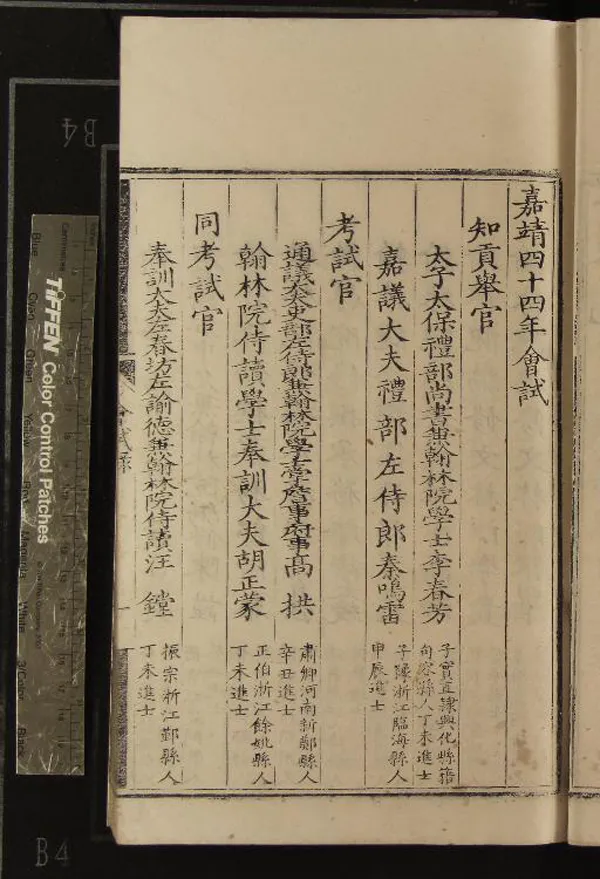 嘉靖四十四年會試
知貢舉官
太子太保禮部尚書兼翰林院學士李春芳 子實直隸興化縣籍
句容縣人丁未進士
嘉議大夫禮部左侍郎秦鳴雷 子豫浙江臨海縣人
甲辰進士
考試官
通議大夫吏部左侍郎兼翰林院學士掌詹事府事高拱 肅卿河南新鄭縣人
辛丑進士
翰林院侍讀學士奉訓大夫胡正蒙 正伯浙江餘姚縣人
丁未進士
同考試官
奉訓大夫左春坊左諭德兼翰林院侍讀汪鏜 振宗浙江鄞縣人
丁未進士
會試錄
一
TIFFEN Color Control Patches
Blue
Cyan
Green
Yellow
Red
Magenta
White
3/Color
Black
B4
B4